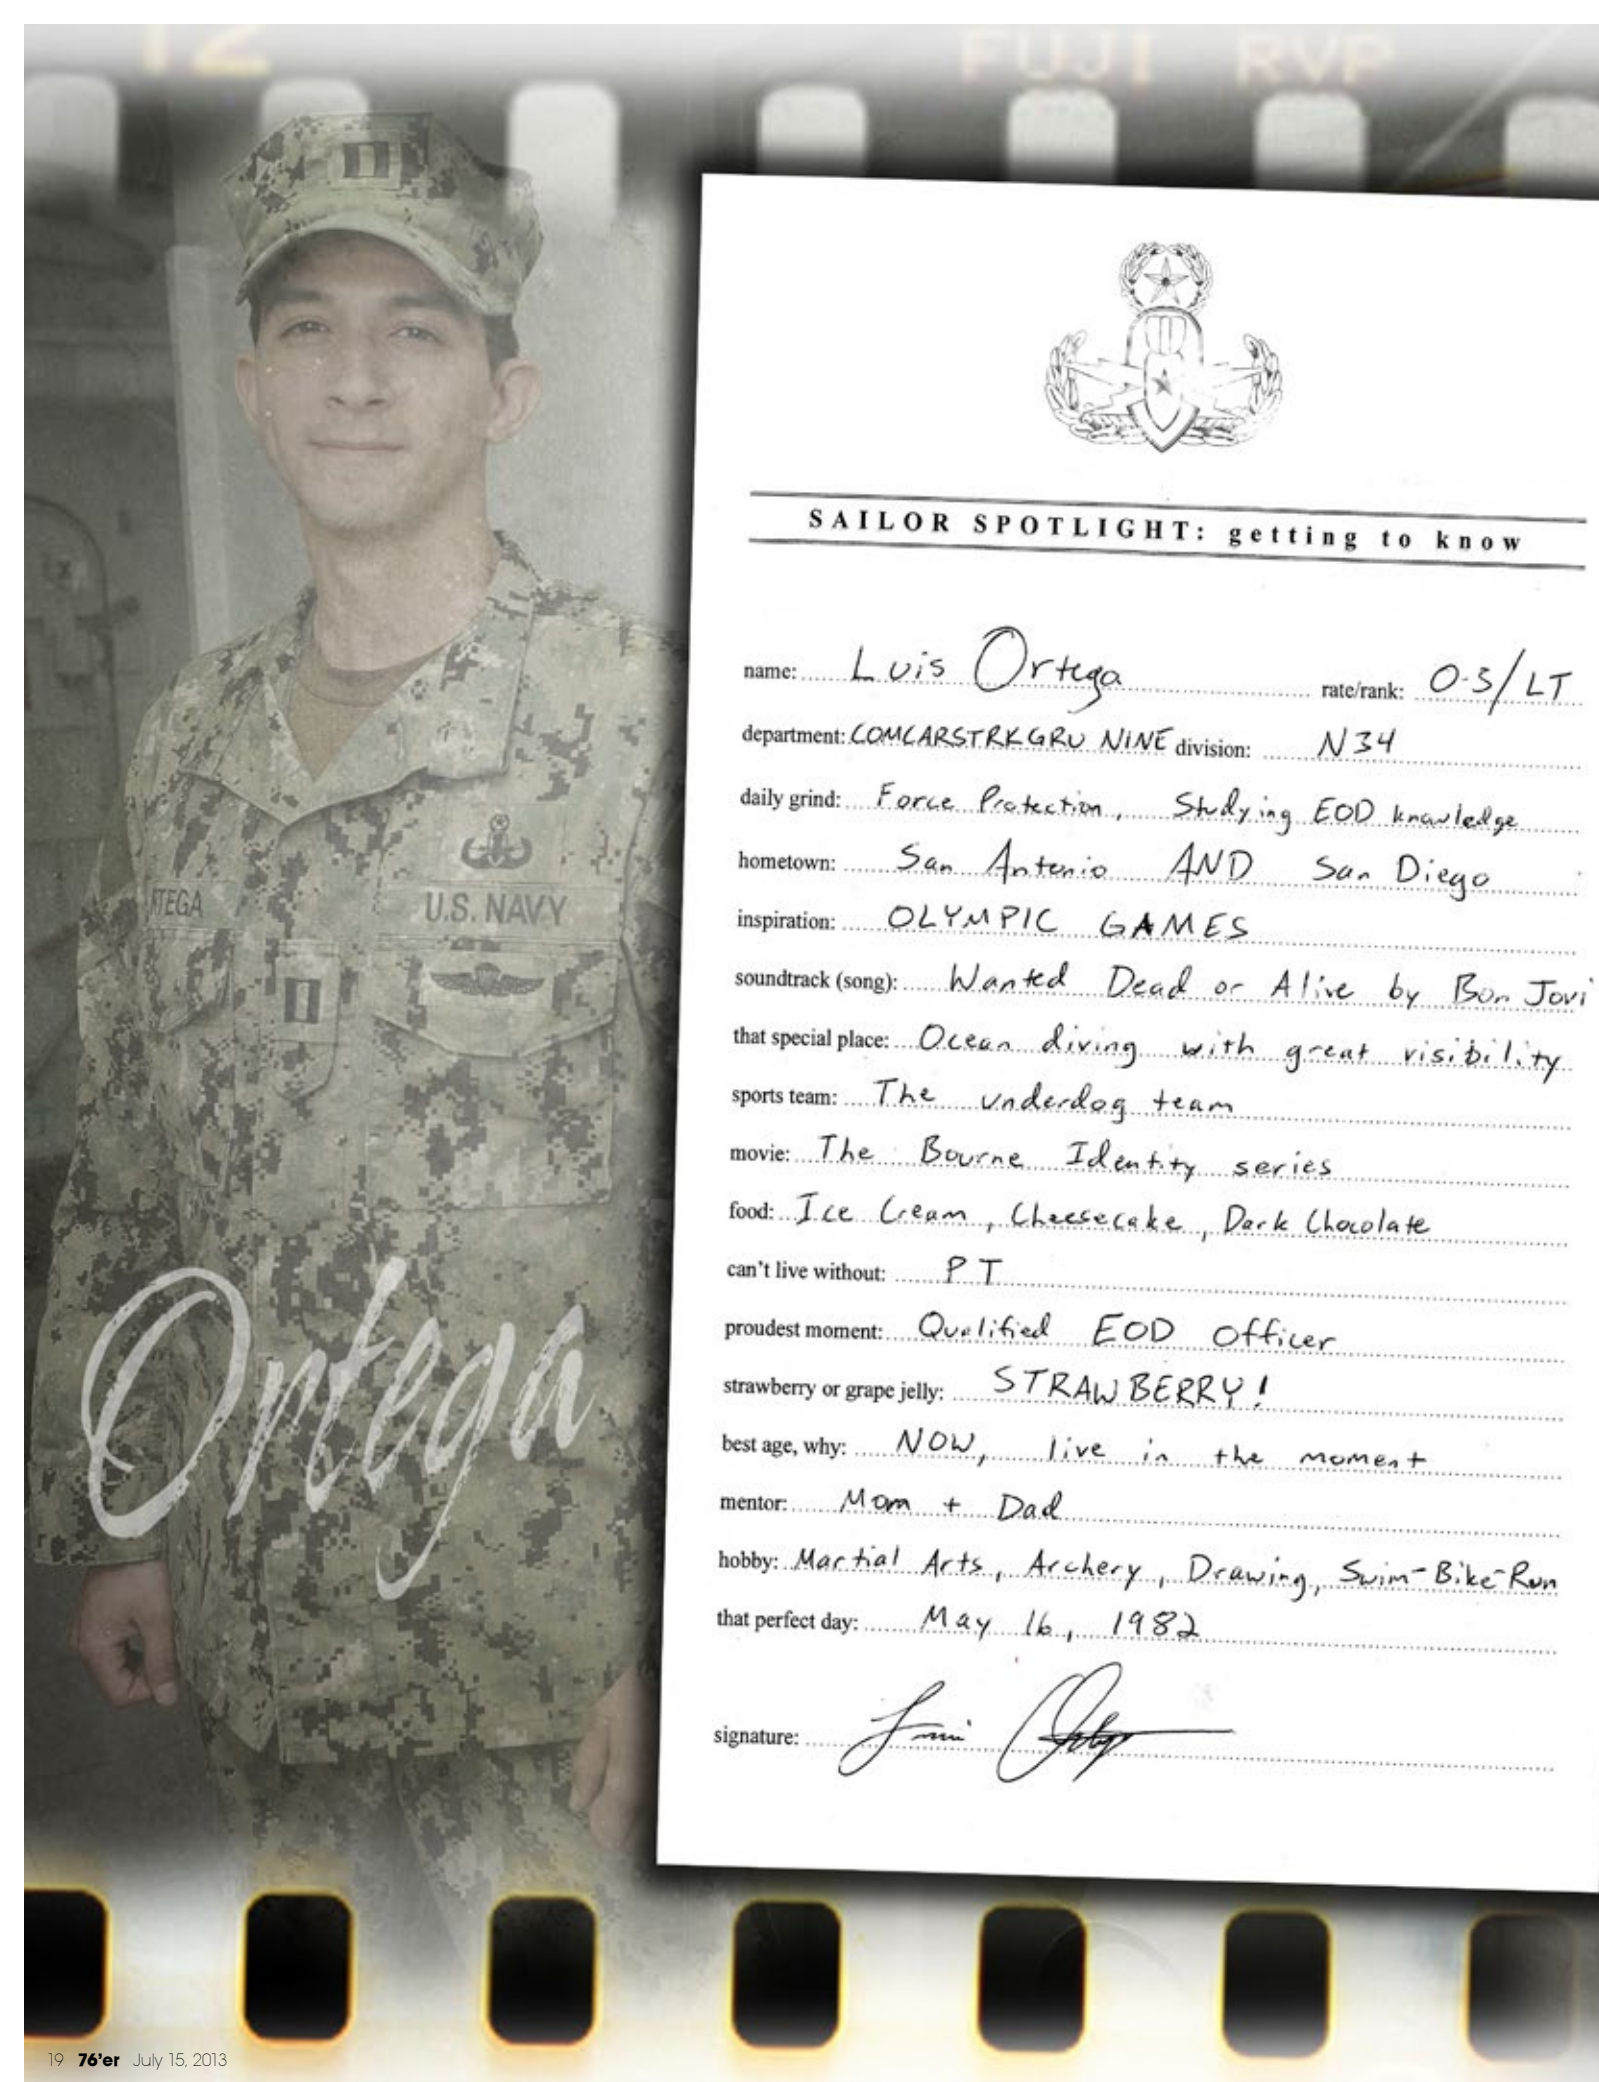 12
FUJI RVP
SAILOR SPOTLIGHT: getting to know
name: Luis Ortega rate/rank: O-3/LT
department: COMCARSTRKGRU NINE division: N34
daily grind: Force Protection, Studying EOD knowledge
hometown: San Antonio AND San Diego
inspiration: OLYMPIC GAMES
soundtrack (song): Wanted Dead or Alive by Bon Jovi
that special place: Ocean diving with great visibility
sports team: The underdog team
movie: The Bourne Identity series
food: Ice Cream, Cheesecake, Dark Chocolate
can't live without: PT
proudest moment: Qualified EOD Officer
strawberry or grape jelly: STRAWBERRY!
best age, why: NOW, live in the moment
mentor: Mom + Dad
hobby: Martial Arts, Archery, Drawing, Swim-Bike-Run
that perfect day: May 16, 1982
signature: Luis Ortega
RTEGA
U.S. NAVY
Ortega
19 76'er July 15, 2013